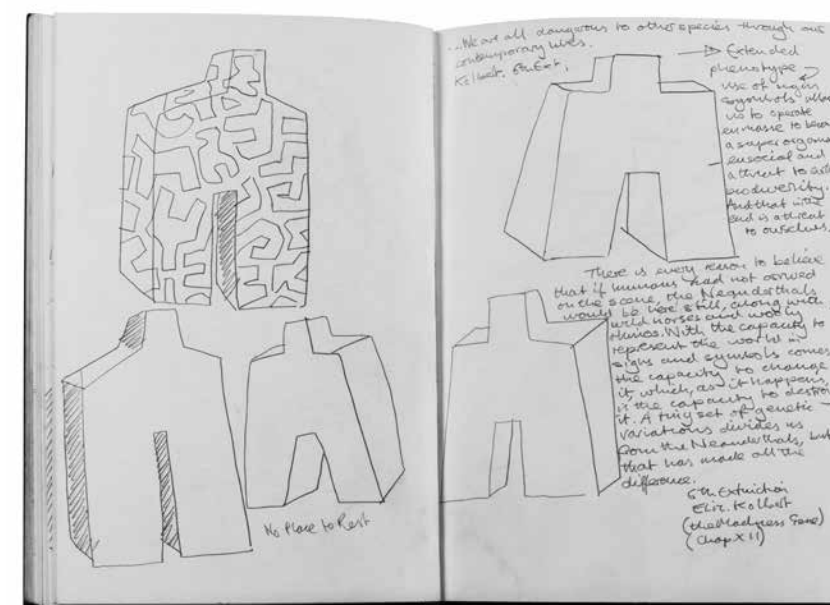 No Place to Rest
...We are all dangerous to other species through our
contemporary lives.
Kolbert. 6th Ext,
Extended
phenotype
use of
symbols
us to operate
en masse to
a super
eusocial and
a threat to
biodiversity.
And that in the
end is a threat
to ourselves.
There is every reason to believe
that if humans had not arrived
on the scene, the Neanderthals
would be here still, along with
wild horses and wooly
rhinos. With the capacity to
represent the world in
signs and symbols comes
the capacity to change
it, which, as it happens,
is the capacity to destroy
it. A tiny set of genetic
variations divides us
from the Neanderthals, but
that has made all the
difference.
6th Extinction
Eliz. Kolbert
(the Madness Gene)
(Chap XII)